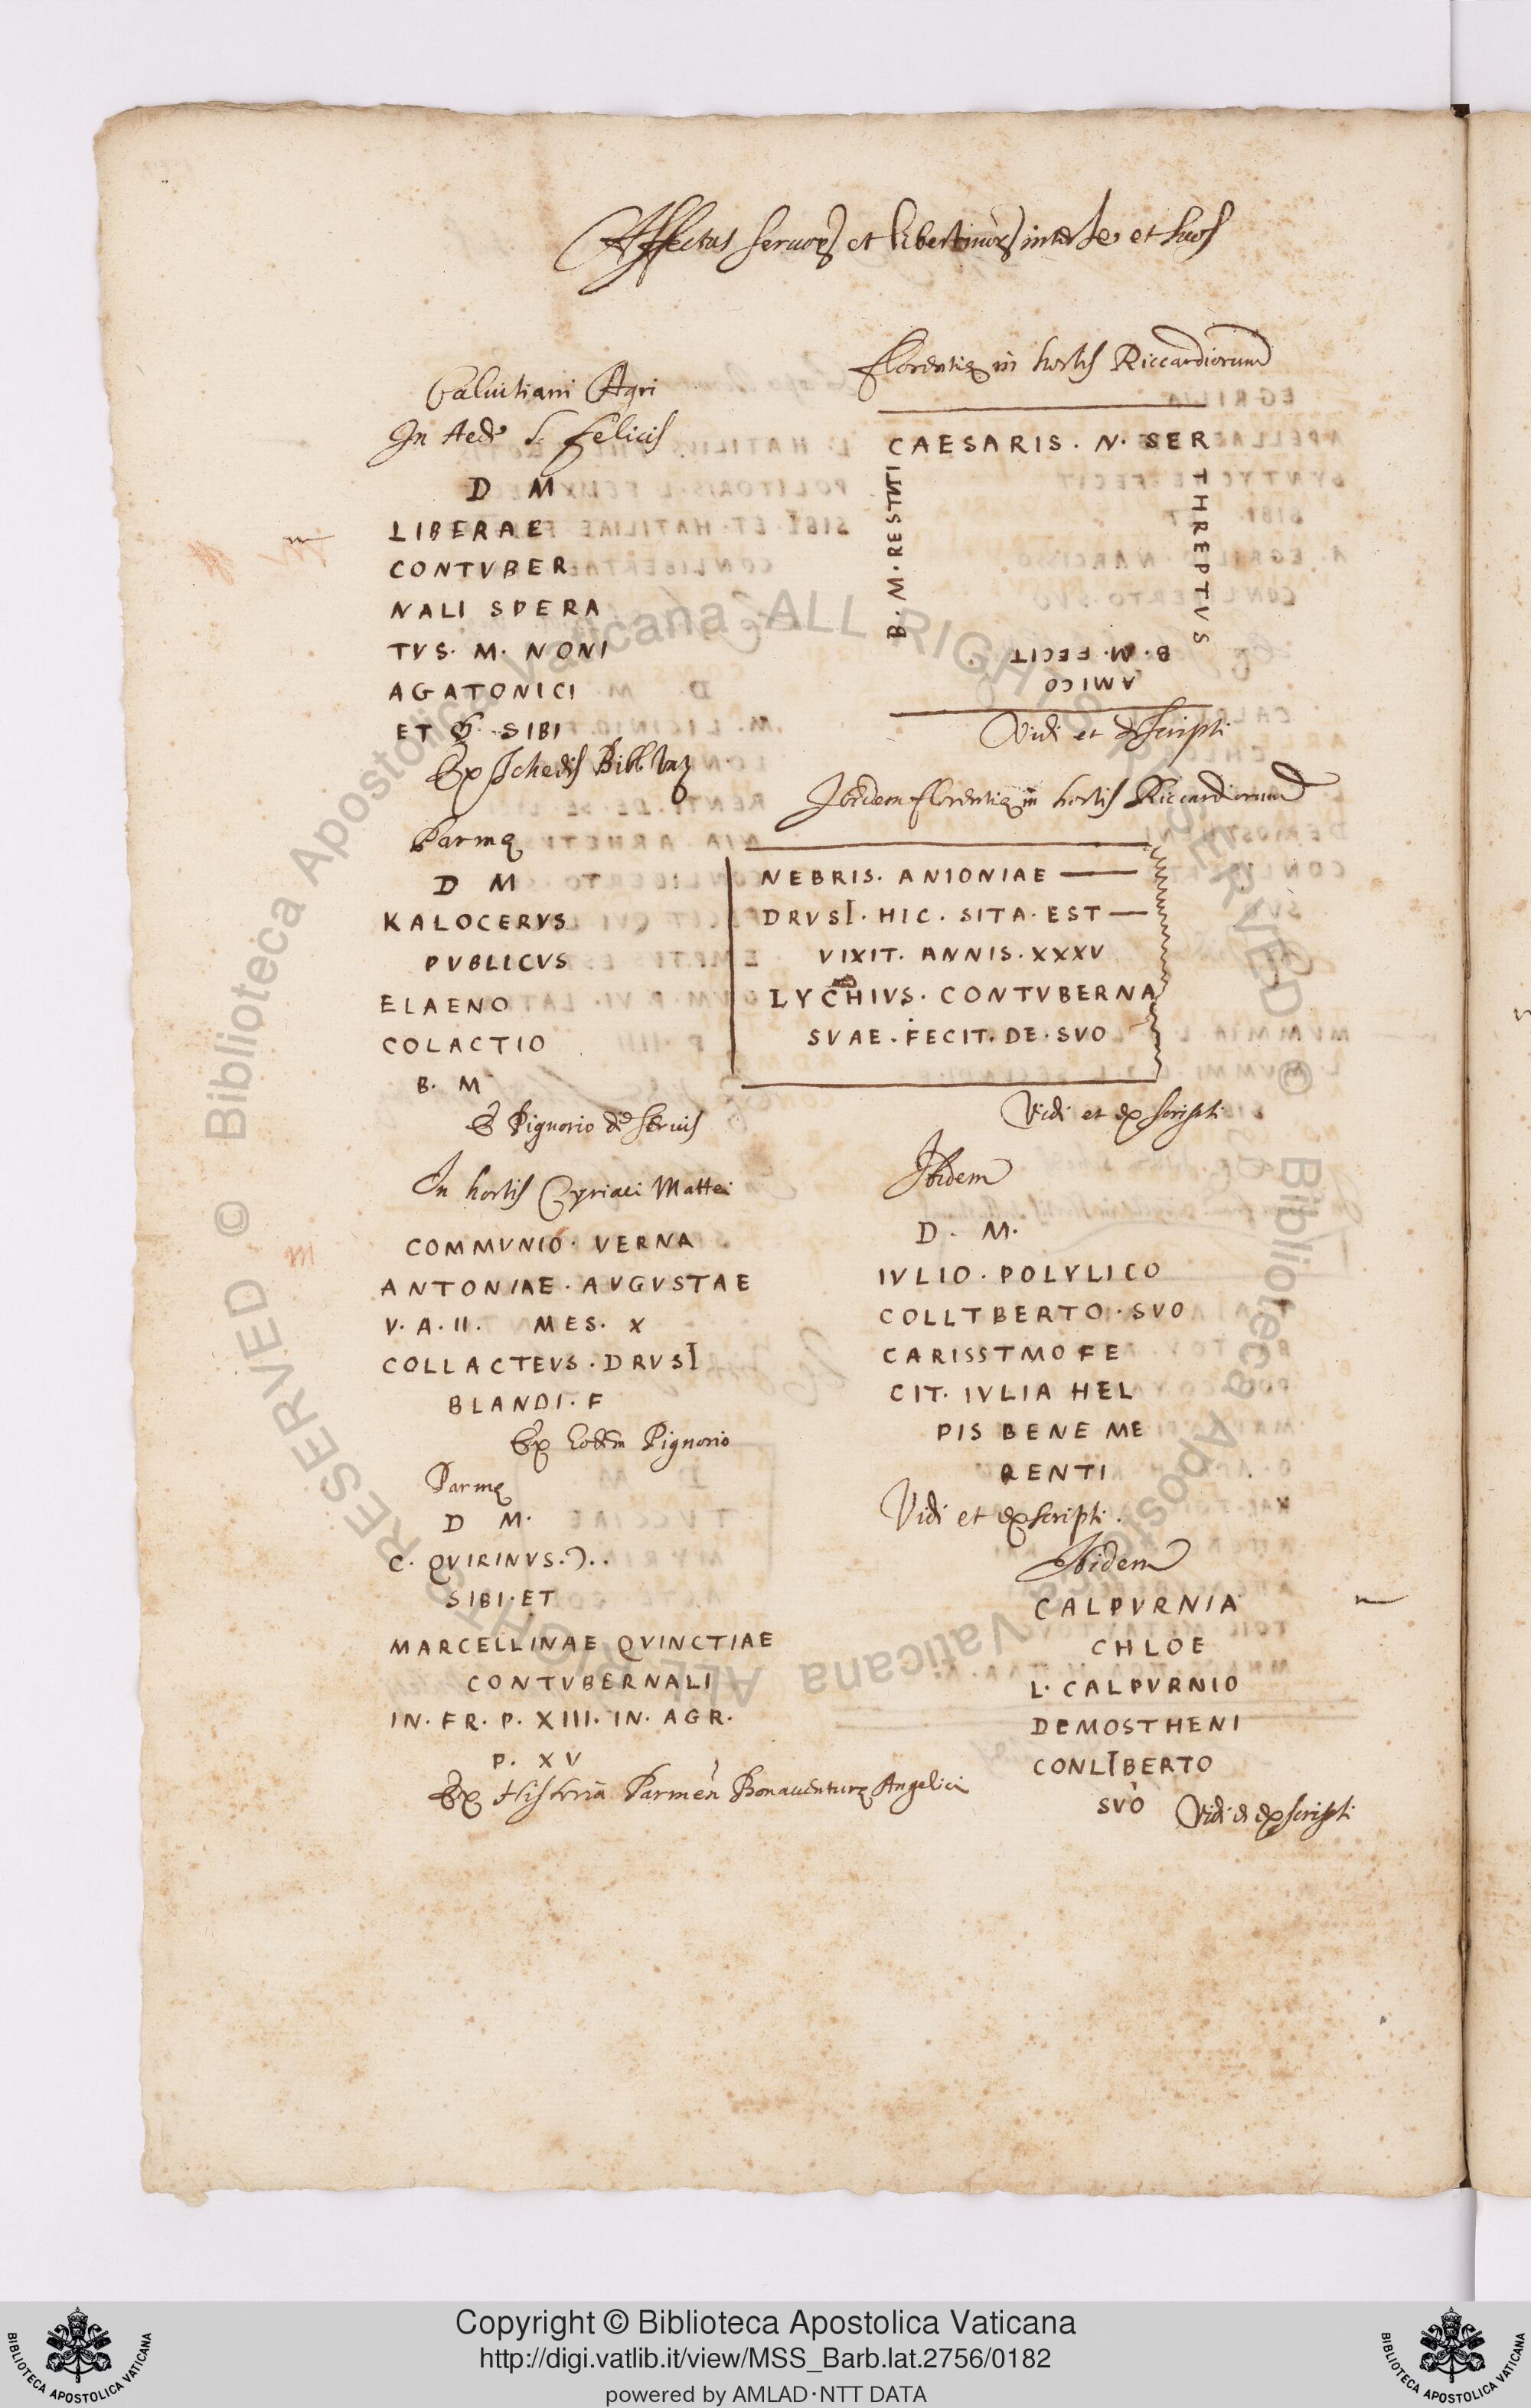 Affectus seruorꝫ et libertinorꝫ inter se et suos
Caluitiani Agri
In Aede S. Felicis
D M
LIBERAE
CONTVBER
NALI SPERA
TVS. M. NONI
AGATONICI
ET SIBI
Ex schedis Bibl. Vat
Parmę
D M
KALOCERVS
PVBLICVS
ELAENO
COLACTIO
B. M
E Pignorio de servis
In hortis Cyriaci Mattei
COMMVNIO. VERNA
ANTONIAE. AVGVSTAE
V. A. II. MES. X
COLLACTEVS. DRVSI
BLANDI. F
Ex Eodem Pignorio
Parmę
D M.
C. QVIRINVS. Ɔ..
SIBI. ET
MARCELLINAE QVINCTIAE
CONTVBERNALI
IN. FR. P. XIII. IN. AGR.
P. XV
Ex Historia Parmen Bonauenturę Angelici
Florentię in hortis Riccardiorum
CAESARIS. N. SER
THREPTVS
B. M. FECIT
AMICO
B. M. RESTVTI
Vidi et exscripti
Ibidem florentię in hortis Riccardiorum
NEBRIS. ANIONIAE —
DRVSI. HIC. SITA. EST —
VIXIT. ANNIS. XXXV
LYCHIVS. CONTVBERNA
SVAE. FECIT. DE. SVO
Vidi et exscripti
Ibidem
D. M.
IVLIO. POLYLICO
COLLTBERTO. SVO
CARISSTMO FE
CIT. IVLIA HEL
PIS BENE ME
RENTI
Vidi et exscripti.
Ibidem
CALPVRNIA
CHLOE
L. CALPVRNIO
DEMOSTHENI
CONLIBERTO
SVO Vidi et exscripti
Copyright © Biblioteca Apostolica Vaticana
http://digi.vatlib.it/view/MSS_Barb.lat.2756/0182
powered by AMLAD·NTT DATA
BIBLIOTECA APOSTOLICA VATICANA
BIBLIOTECA APOSTOLICA VATICANA
© Biblioteca Apostolica Vaticana ALL RIGHTS RESERVED
© Biblioteca Apostolica Vaticana ALL RIGHTS RESERVED